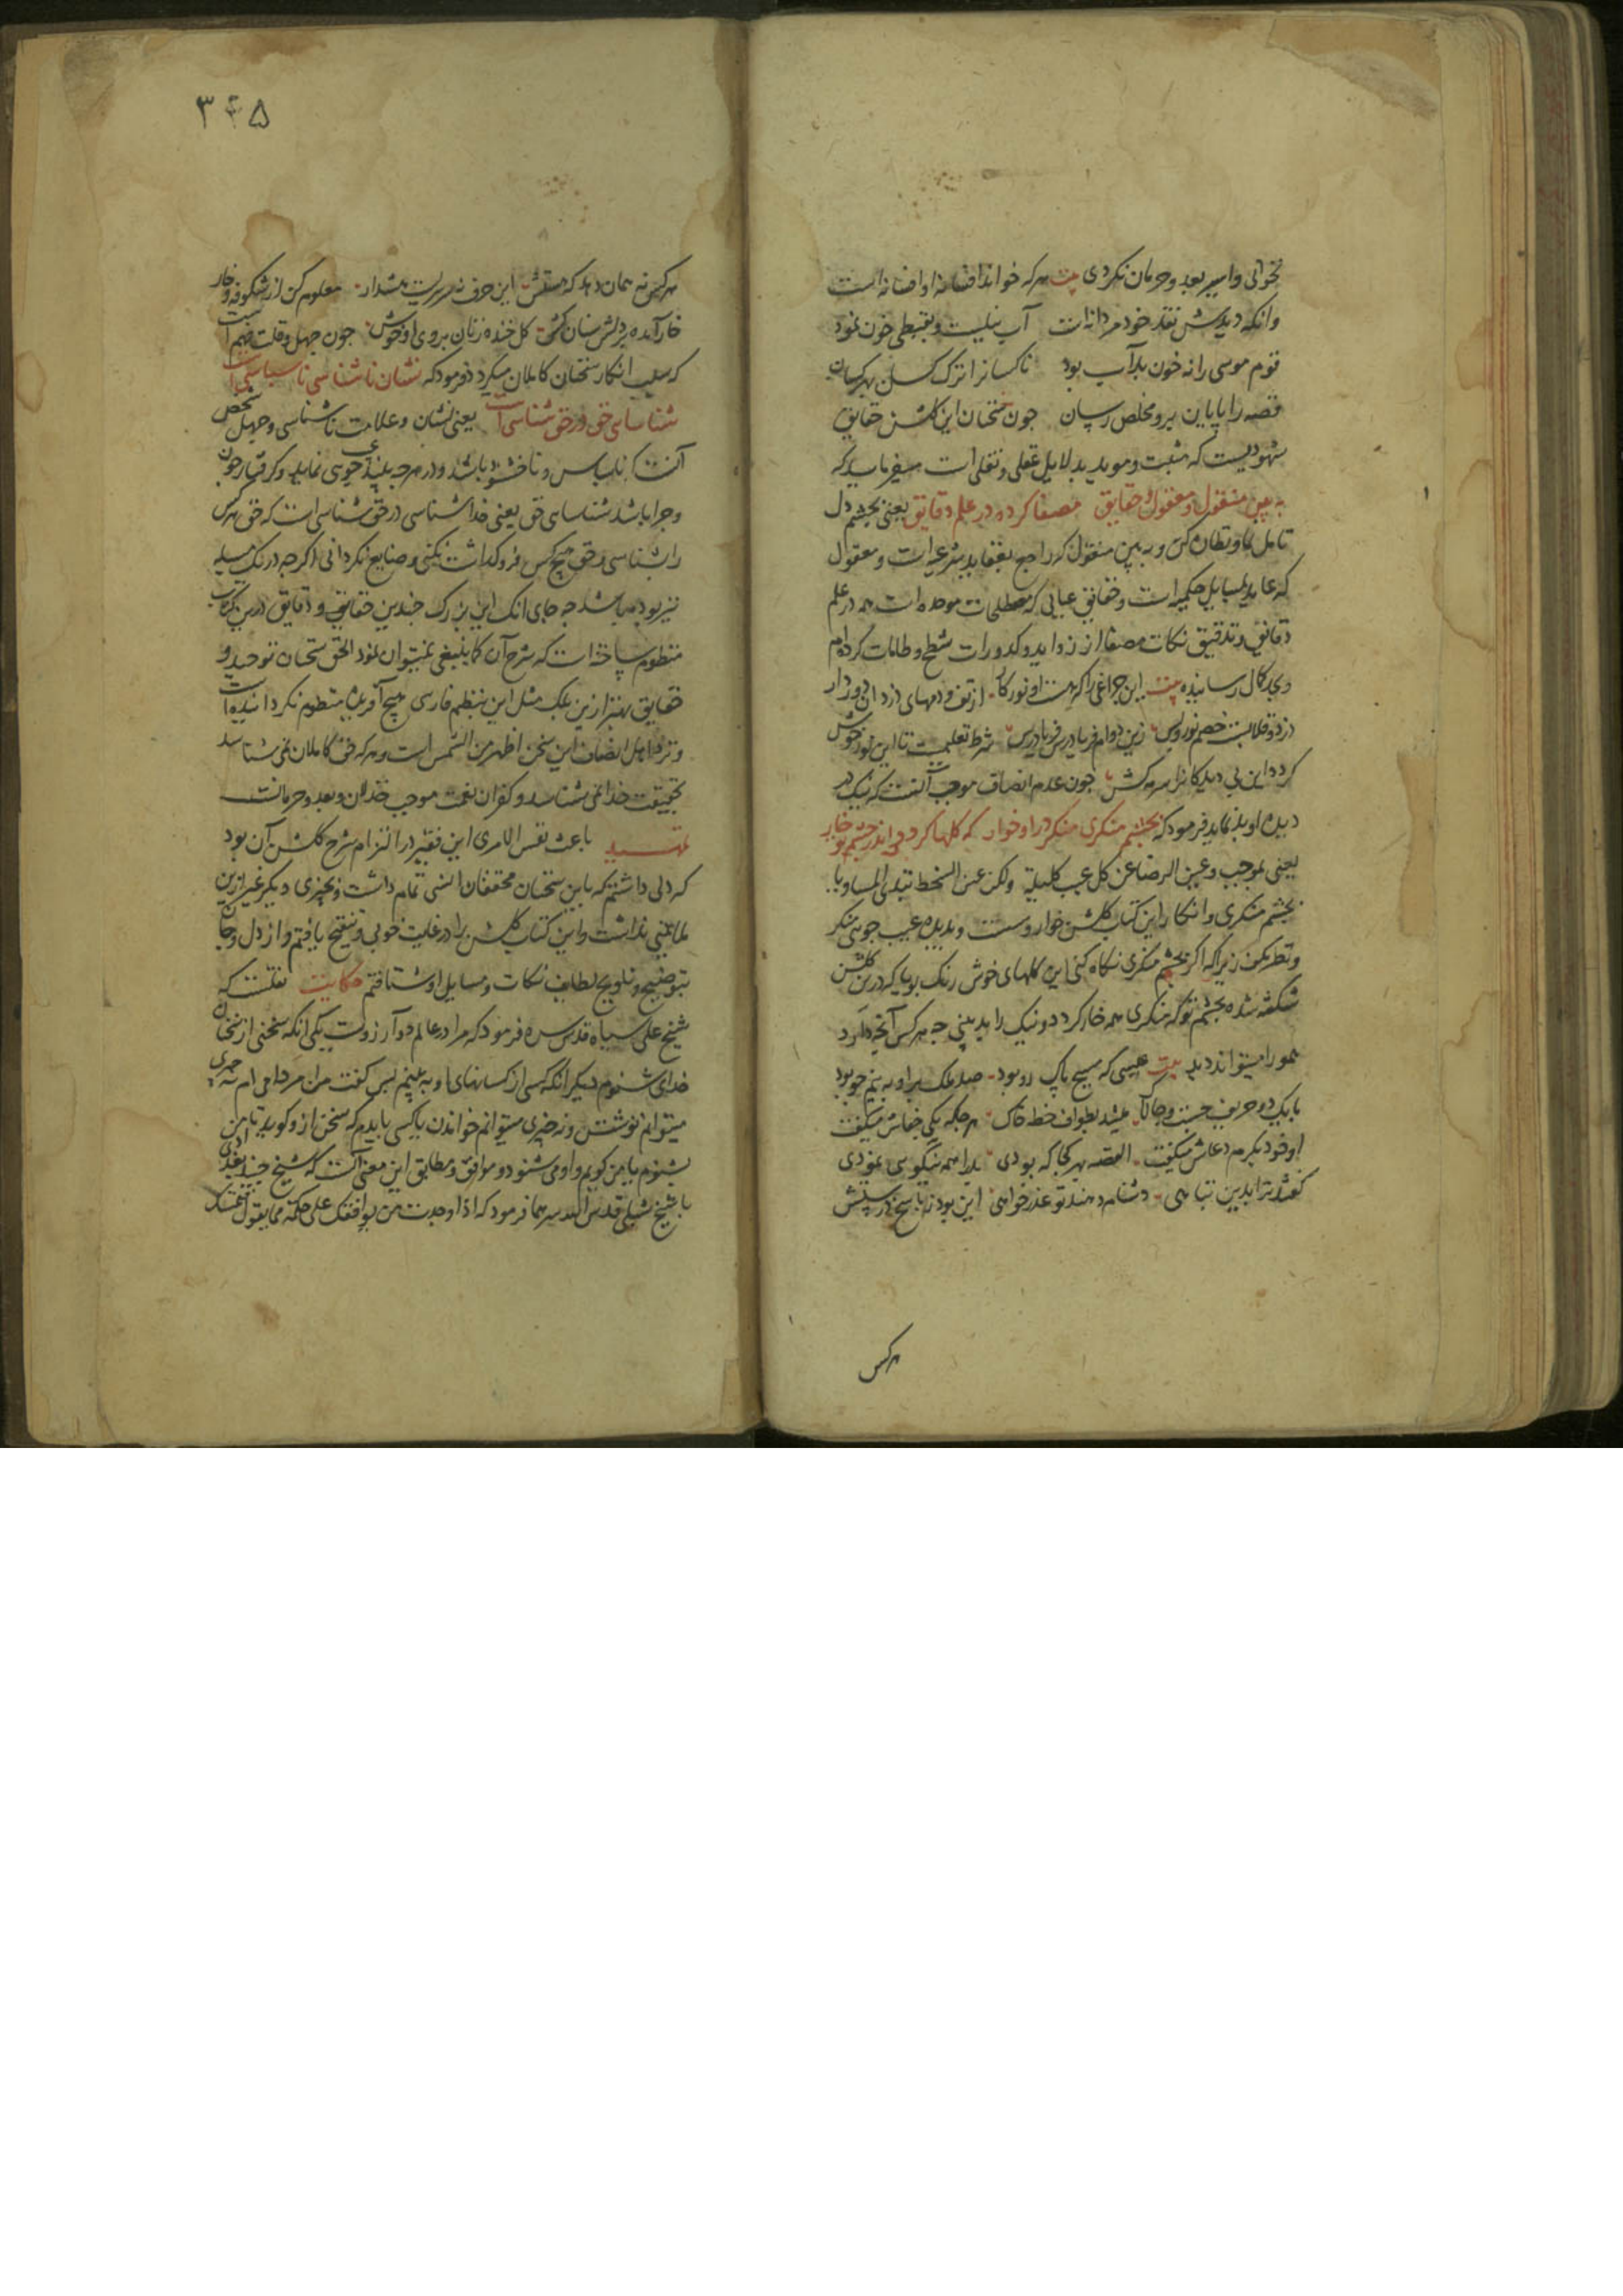 نخوانی و اسیر بعد و حرمان نکردی بیت هرکه خواند افسانه او افسانه است
وانکه دیدش نقد خود مردانه است آب نیلست و بقبطی خون نمود
قوم موسی را نه خون بد آب بود ناکسانرا ترک کن بهر کسان
قصه را پایان بر و مخلص رسان چون سخنان این گلشن حقایق
شهودیست که مثبت و موید بدلایل عقلی و نقلی است میفرماید که
به بین منقول و معقول و حقایق مصفا کرده در علم دقایق یعنی بچشم دل
تامل نما و نظاره کن و به بین منقول که راجع بعقاید شرعی است و معقول
که عاید بمسایل حکمیه است و حقایق عیانی که مصطلحات موحده است همه در علم
دقایق و تدقیق نکات مصفا از زواید و کدورات شطح و طامات کرده ام
و بکمال رسانیده بیت این چراغی را که هست او نور کار از تف و دمهای دزدان دور دار
دزد و قلابست خصم نور بس زین دو ام فریادرس فریادرس شرط تعلیمست تا این نور خوش
گردد این بی دیدگانرا سرمه کش چون عدم انصاف موجب آنست که نیک در
دیده او بد نماید فرمود که بچشم منکری منکر در او خوار که گلها گردد اندر چشم تو خار
یعنی بموجب و عین الرضا عن کل عیب کلیلة ولکن عین السخط تبدی المساویا
بچشم منکری و انکار این کتاب گلشن خوار و سست و بدیده عیب جویی منکر
و نظر مکن زیرا که اگر بچشم منکری نگاه کنی این گلهای خوش رنگ بویا که درین گلشن
شکفته شده بچشم تو که منکری همه خار گردد و نیک را بد بینی چه هرکس آنچه دارد
همو را میتواند دید بیت عیسی که مسیح پاک رو بود صد ملک براو به نیم جو بود
با یک دو حریف چست و چالاک میشد بطواف خطه خاک هرجا که یکی جفاش میگفت
او خود بکرم دعاش میگفت القصه بهر کجا که بودی بد را همه نیکویی نمودی
گفتند ترا بدین تباهی دشنام دهند تو عذر خواهی این بود پاسخ در
هرکس
۳۴۵
هرکس نه همان دهد که هستش این حرف نه سرسریست هشدار معلوم کن از شکوفه و خار
خار آمده بردلش سنان گشت گل خنده زنان بروی او خوش چون جهل و قلت فهم است
که سبب انکار سخنان کاملان میگردد فرمود که نشان ناشناسی ناسپاسی است
شناسایی حق در حق شناسی است یعنی نشان و علامت ناشناسی و جهل شخص
آنست که ناسپاس و ناخشنود باشد و در هرچه بیند عیب جویی نماید و گرفتار چون
و چرا باشد شناسایی حق یعنی خداشناسی در حق شناسی است که حق هرکس
را بشناسی و حق هیچ کس فروگذاشت نکنی و ضایع نگردانی اگرچه در یک مسیله
نیز بوده باشد چه جای آنک این بزرگ چندین حقایق و دقایق درین کتاب
منظوم ساخته است که شرح آن کما ینبغی نمیتوان نمود الحق سخنان توحید و
حقایق بهتر ازین بلک مثل این بنظم فارسی هیچ آفریده منظوم نگردانیده است
و نزد اهل انصاف این سخن اظهر من الشمس است و هرکه حق کاملان نمی شناسد
بحقیقت خدا نمی شناسد و کفران نعمت موجب خذلان و بعد و حرمانست
تمهید باعث نفس الامری این فقیر در التزام شرح گلشن آن بود
که دلی داشتم که باین سخنان محققان انسی تمام داشت و بچیزی دیگر غیر ازین
طمانینی نداشت و این کتاب گلشن را در غایت خوبی و تنقیح یافتم و از دل و جان
بتوضیح و تلویح لطایف نکات و مسایل او شتافتم حکایت نقلست که
شیخ علی سیاه قدس سره فرمود که مرا در عالم دو آرزوست یکی آنکه سخنی از سخنان
خدای شنوم دیگر آنکه کسی از کسانهای او به بینم پس گفت من مردامی ام نه چیزی
میتوانم نوشتن و نه چیزی میتوانم خواندن یا کسی بایدم که سخن ازو گوید تا من
بشنوم یا من گویم و او می شنود و موافق و مطابق این معنی آنست که شیخ جنید بغدادی
با شیخ شبلی قدس الله سرهما فرمود که اذا وجدت من یوافقک علی کلمة مما یقول فتمسک